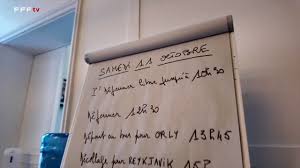 FFF tv
SAMEDI 11 OCTOBRE
Pt Déjeuner libre jusqu'à 10H30
Déjeuner 12H30
Départ en bus pour ORLY 13H45
Décollage pour REYKJAVIK 15H